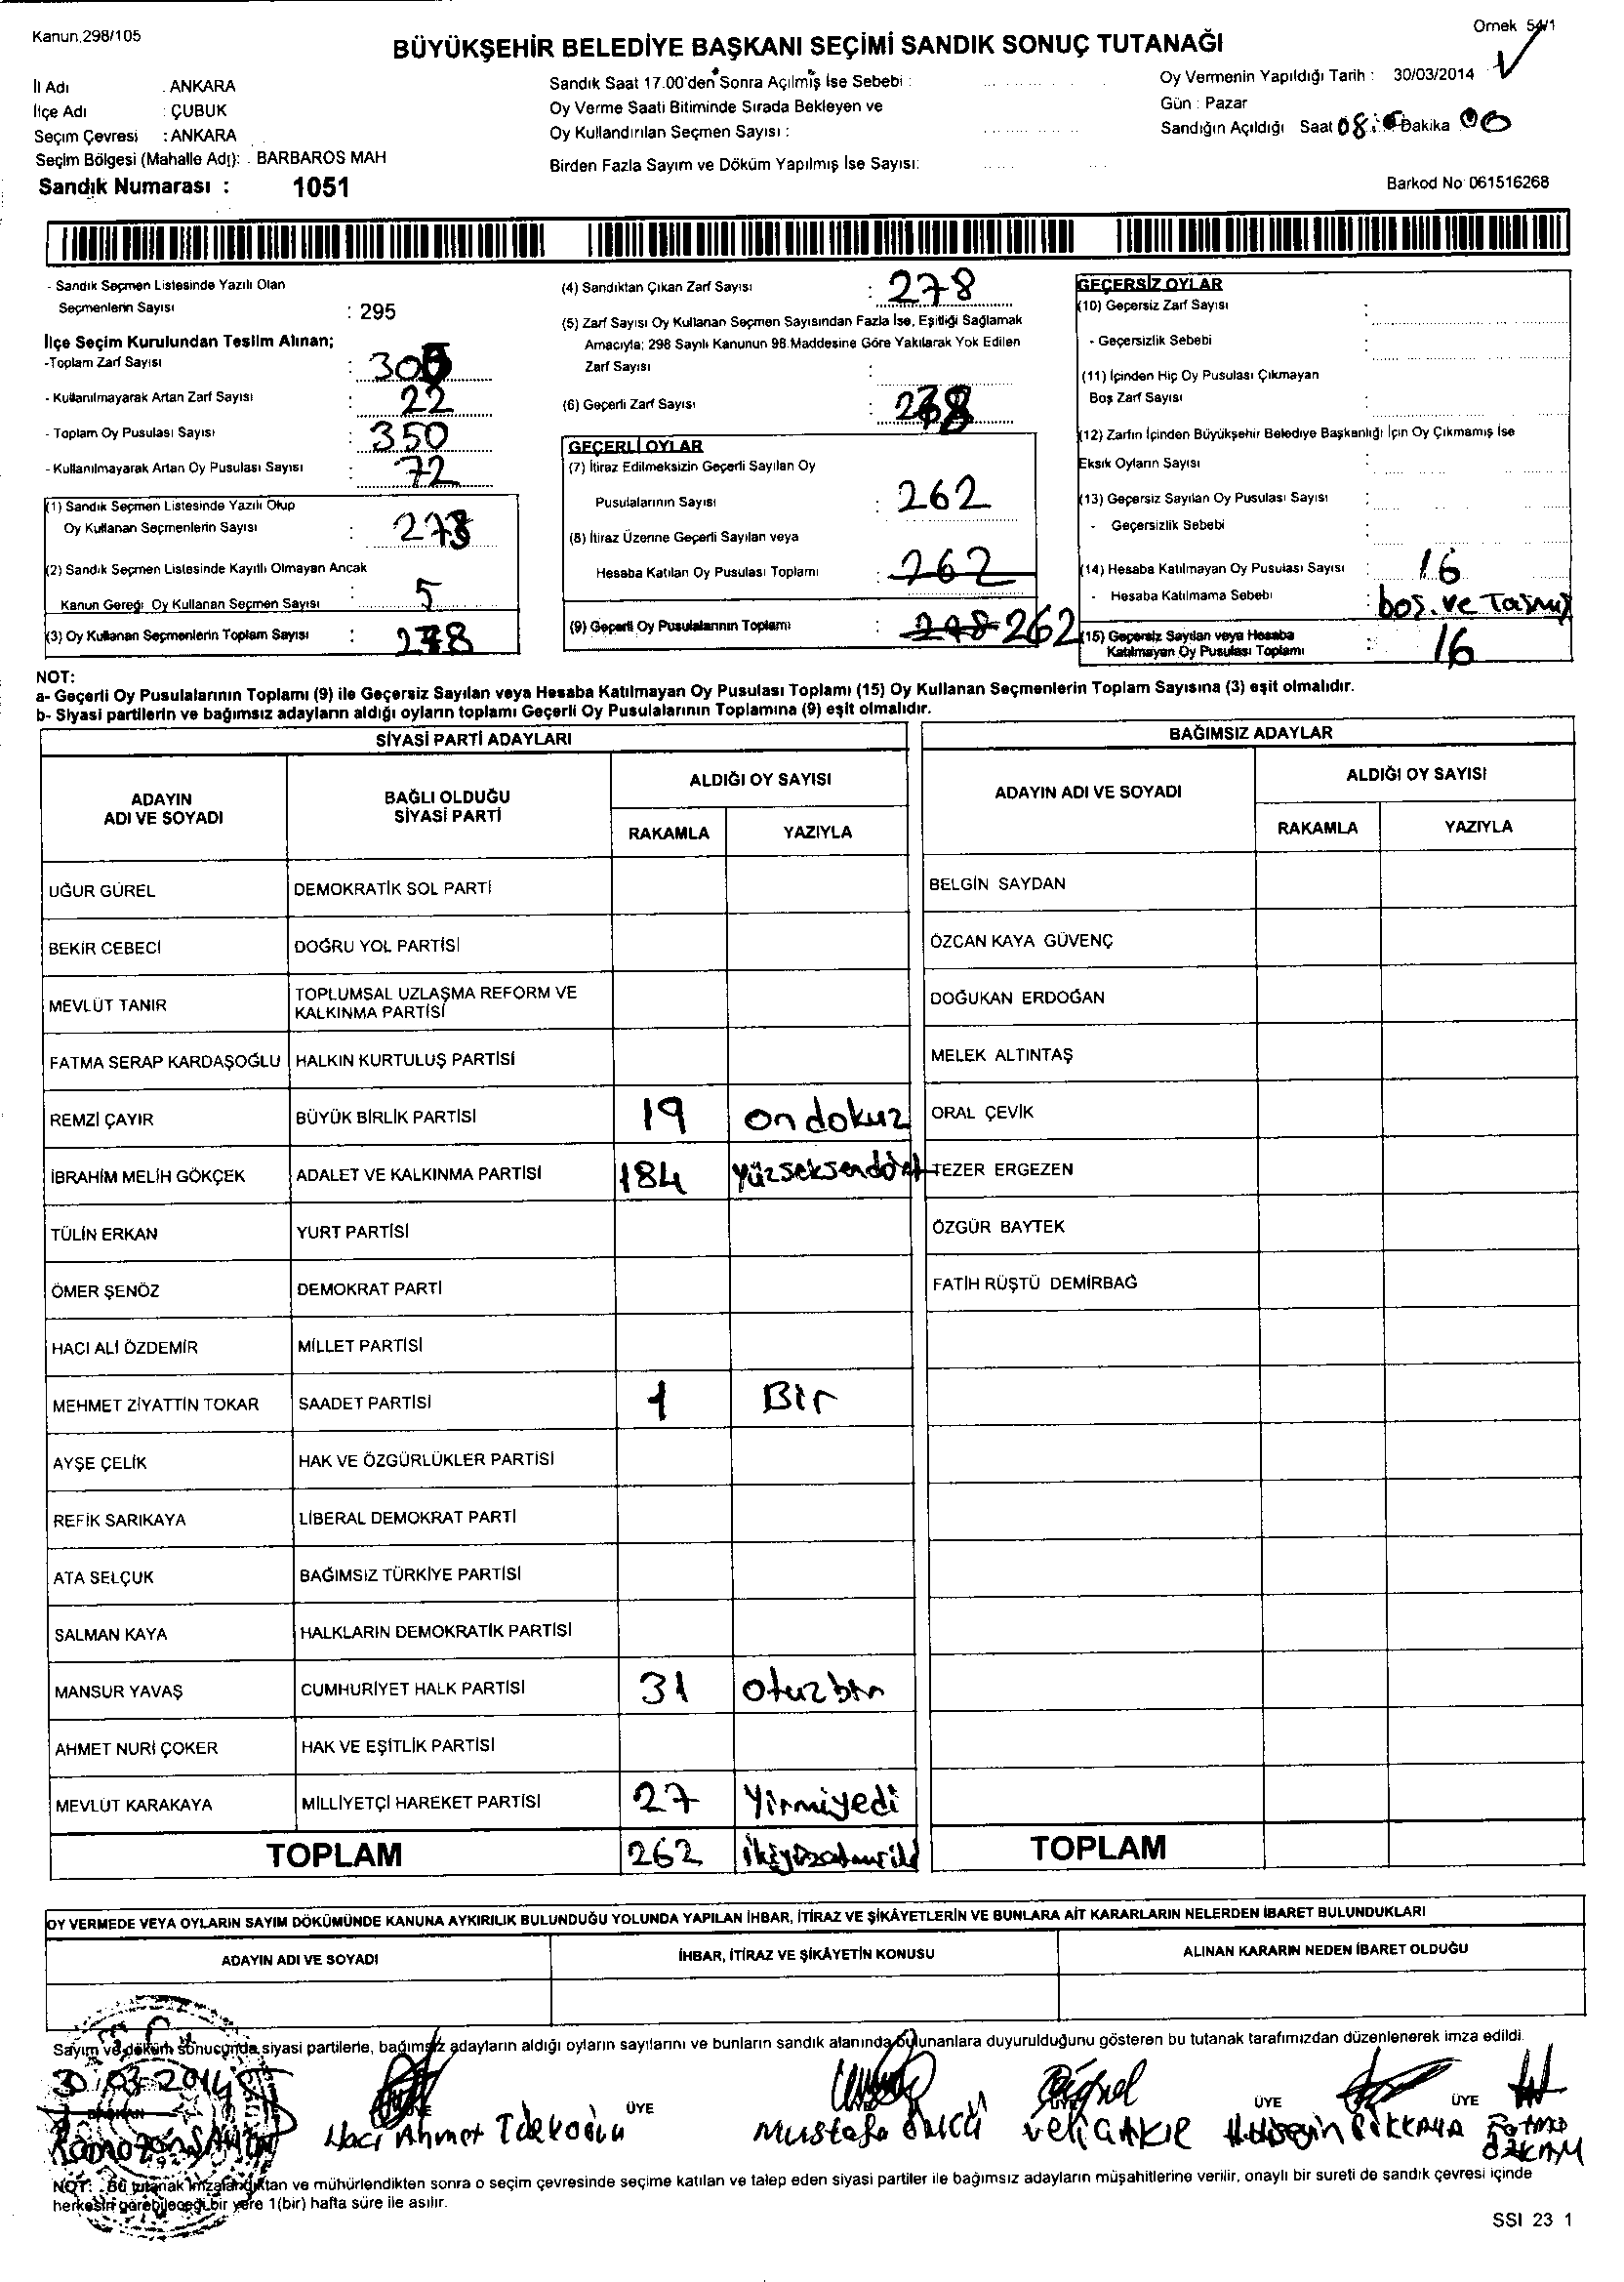 Kanun,298/105
Örnek 54/1
BÜYÜKŞEHİR BELEDİYE BAŞKANI SEÇİMİ SANDIK SONUÇ TUTANAĞI
İl Adı : ANKARA
İlçe Adı : ÇUBUK
Seçim Çevresi : ANKARA
Seçim Bölgesi (Mahalle Adı): BARBAROS MAH
Sandık Numarası : 1051
Sandık Saat 17.00'den Sonra Açılmış İse Sebebi :
Oy Verme Saati Bitiminde Sırada Bekleyen ve
Oy Kullandırılan Seçmen Sayısı :
Birden Fazla Sayım ve Döküm Yapılmış İse Sayısı:
Oy Vermenin Yapıldığı Tarih : 30/03/2014
Gün : Pazar
Sandığın Açıldığı Saat 08 Dakika 00
Barkod No 061516268
- Sandık Seçmen Listesinde Yazılı Olan
Seçmenlerin Sayısı : 295
İlçe Seçim Kurulundan Teslim Alınan;
-Toplam Zarf Sayısı : 300
- Kullanılmayarak Artan Zarf Sayısı : 22
- Toplam Oy Pusulası Sayısı : 350
- Kullanılmayarak Artan Oy Pusulası Sayısı : 72
(1) Sandık Seçmen Listesinde Yazılı Olup
Oy Kullanan Seçmenlerin Sayısı : 273
(2) Sandık Seçmen Listesinde Kayıtlı Olmayan Ancak
Kanun Gereği Oy Kullanan Seçmen Sayısı : 5
(3) Oy Kullanan Seçmenlerin Toplam Sayısı : 278
(4) Sandıktan Çıkan Zarf Sayısı : 278
(5) Zarf Sayısı Oy Kullanan Seçmen Sayısından Fazla İse, Eşitliği Sağlamak
Amacıyla; 298 Sayılı Kanunun 98.Maddesine Göre Yakılarak Yok Edilen
Zarf Sayısı :
(6) Geçerli Zarf Sayısı : 278
GEÇERLİ OYLAR
(7) İtiraz Edilmeksizin Geçerli Sayılan Oy
Pusulalarının Sayısı : 262
(8) İtiraz Üzerine Geçerli Sayılan veya
Hesaba Katılan Oy Pusulası Toplamı : 262
(9) Geçerli Oy Pusulalarının Toplamı : 278 262
GEÇERSİZ OYLAR
(10) Geçersiz Zarf Sayısı :
- Geçersizlik Sebebi :
(11) İçinden Hiç Oy Pusulası Çıkmayan
Boş Zarf Sayısı :
(12) Zarfın İçinden Büyükşehir Belediye Başkanlığı İçin Oy Çıkmamış İse
Eksik Oyların Sayısı :
(13) Geçersiz Sayılan Oy Pusulası Sayısı :
- Geçersizlik Sebebi :
(14) Hesaba Katılmayan Oy Pusulası Sayısı : 16
- Hesaba Katılmama Sebebi : boş. ve Taşmış
(15) Geçersiz Sayılan veya Hesaba
Katılmayan Oy Pusulası Toplamı : 16
NOT:
a- Geçerli Oy Pusulalarının Toplamı (9) ile Geçersiz Sayılan veya Hesaba Katılmayan Oy Pusulası Toplamı (15) Oy Kullanan Seçmenlerin Toplam Sayısına (3) eşit olmalıdır.
b- Siyasi partilerin ve bağımsız adayların aldığı oyların toplamı Geçerli Oy Pusulalarının Toplamına (9) eşit olmalıdır.
SİYASİ PARTİ ADAYLARI
ADAYIN ADI VE SOYADI
BAĞLI OLDUĞU SİYASİ PARTİ
ALDIĞI OY SAYISI
RAKAMLA YAZIYLA
UĞUR GÜREL DEMOKRATİK SOL PARTİ
BEKİR CEBECİ DOĞRU YOL PARTİSİ
MEVLÜT TANIR TOPLUMSAL UZLAŞMA REFORM VE KALKINMA PARTİSİ
FATMA SERAP KARDAŞOĞLU HALKIN KURTULUŞ PARTİSİ
REMZİ ÇAYIR BÜYÜK BİRLİK PARTİSİ 19 ondokuz
İBRAHİM MELİH GÖKÇEK ADALET VE KALKINMA PARTİSİ 184 yüzseksendört
TÜLİN ERKAN YURT PARTİSİ
ÖMER ŞENÖZ DEMOKRAT PARTİ
HACI ALİ ÖZDEMİR MİLLET PARTİSİ
MEHMET ZİYATTİN TOKAR SAADET PARTİSİ 1 Bir
AYŞE ÇELİK HAK VE ÖZGÜRLÜKLER PARTİSİ
REFİK SARIKAYA LİBERAL DEMOKRAT PARTİ
ATA SELÇUK BAĞIMSIZ TÜRKİYE PARTİSİ
SALMAN KAYA HALKLARIN DEMOKRATİK PARTİSİ
MANSUR YAVAŞ CUMHURİYET HALK PARTİSİ 31 otuzbir
AHMET NURİ ÇOKER HAK VE EŞİTLİK PARTİSİ
MEVLÜT KARAKAYA MİLLİYETÇİ HAREKET PARTİSİ 27 Yirmiyedi
TOPLAM 262
BAĞIMSIZ ADAYLAR
ADAYIN ADI VE SOYADI
ALDIĞI OY SAYISI
RAKAMLA YAZIYLA
BELGİN SAYDAN
ÖZCAN KAYA GÜVENÇ
DOĞUKAN ERDOĞAN
MELEK ALTINTAŞ
ORAL ÇEVİK
TEZER ERGEZEN
ÖZGÜR BAYTEK
FATİH RÜŞTÜ DEMİRBAĞ
TOPLAM
OY VERMEDE VEYA OYLARIN SAYIM DÖKÜMÜNDE KANUNA AYKIRILIK BULUNDUĞU YOLUNDA YAPILAN İHBAR, İTİRAZ VE ŞİKÂYETLERİN VE BUNLARA AİT KARARLARIN NELERDEN İBARET BULUNDUKLARI
ADAYIN ADI VE SOYADI
İHBAR, İTİRAZ VE ŞİKÂYETİN KONUSU
ALINAN KARARIN NEDEN İBARET OLDUĞU
Sayım ve döküm sonucunda siyasi partilerle, bağımsız adayların aldığı oyların sayılarını ve bunların sandık alanında bulunanlara duyurulduğunu gösteren bu tutanak tarafımızdan düzenlenerek imza edildi.
30/03-2014
BAŞKAN ÜYE ÜYE ÜYE
Hacı Ahmet
Mustafa
Veli
Hüseyin
NOT: Bu tutanak imzalandıktan ve mühürlendikten sonra o seçim çevresinde seçime katılan ve talep eden siyasi partiler ile bağımsız adayların müşahitlerine verilir, onaylı bir sureti de sandık çevresi içinde
herkesin görebileceği bir yere 1(bir) hafta süre ile asılır.
SSI 23 1